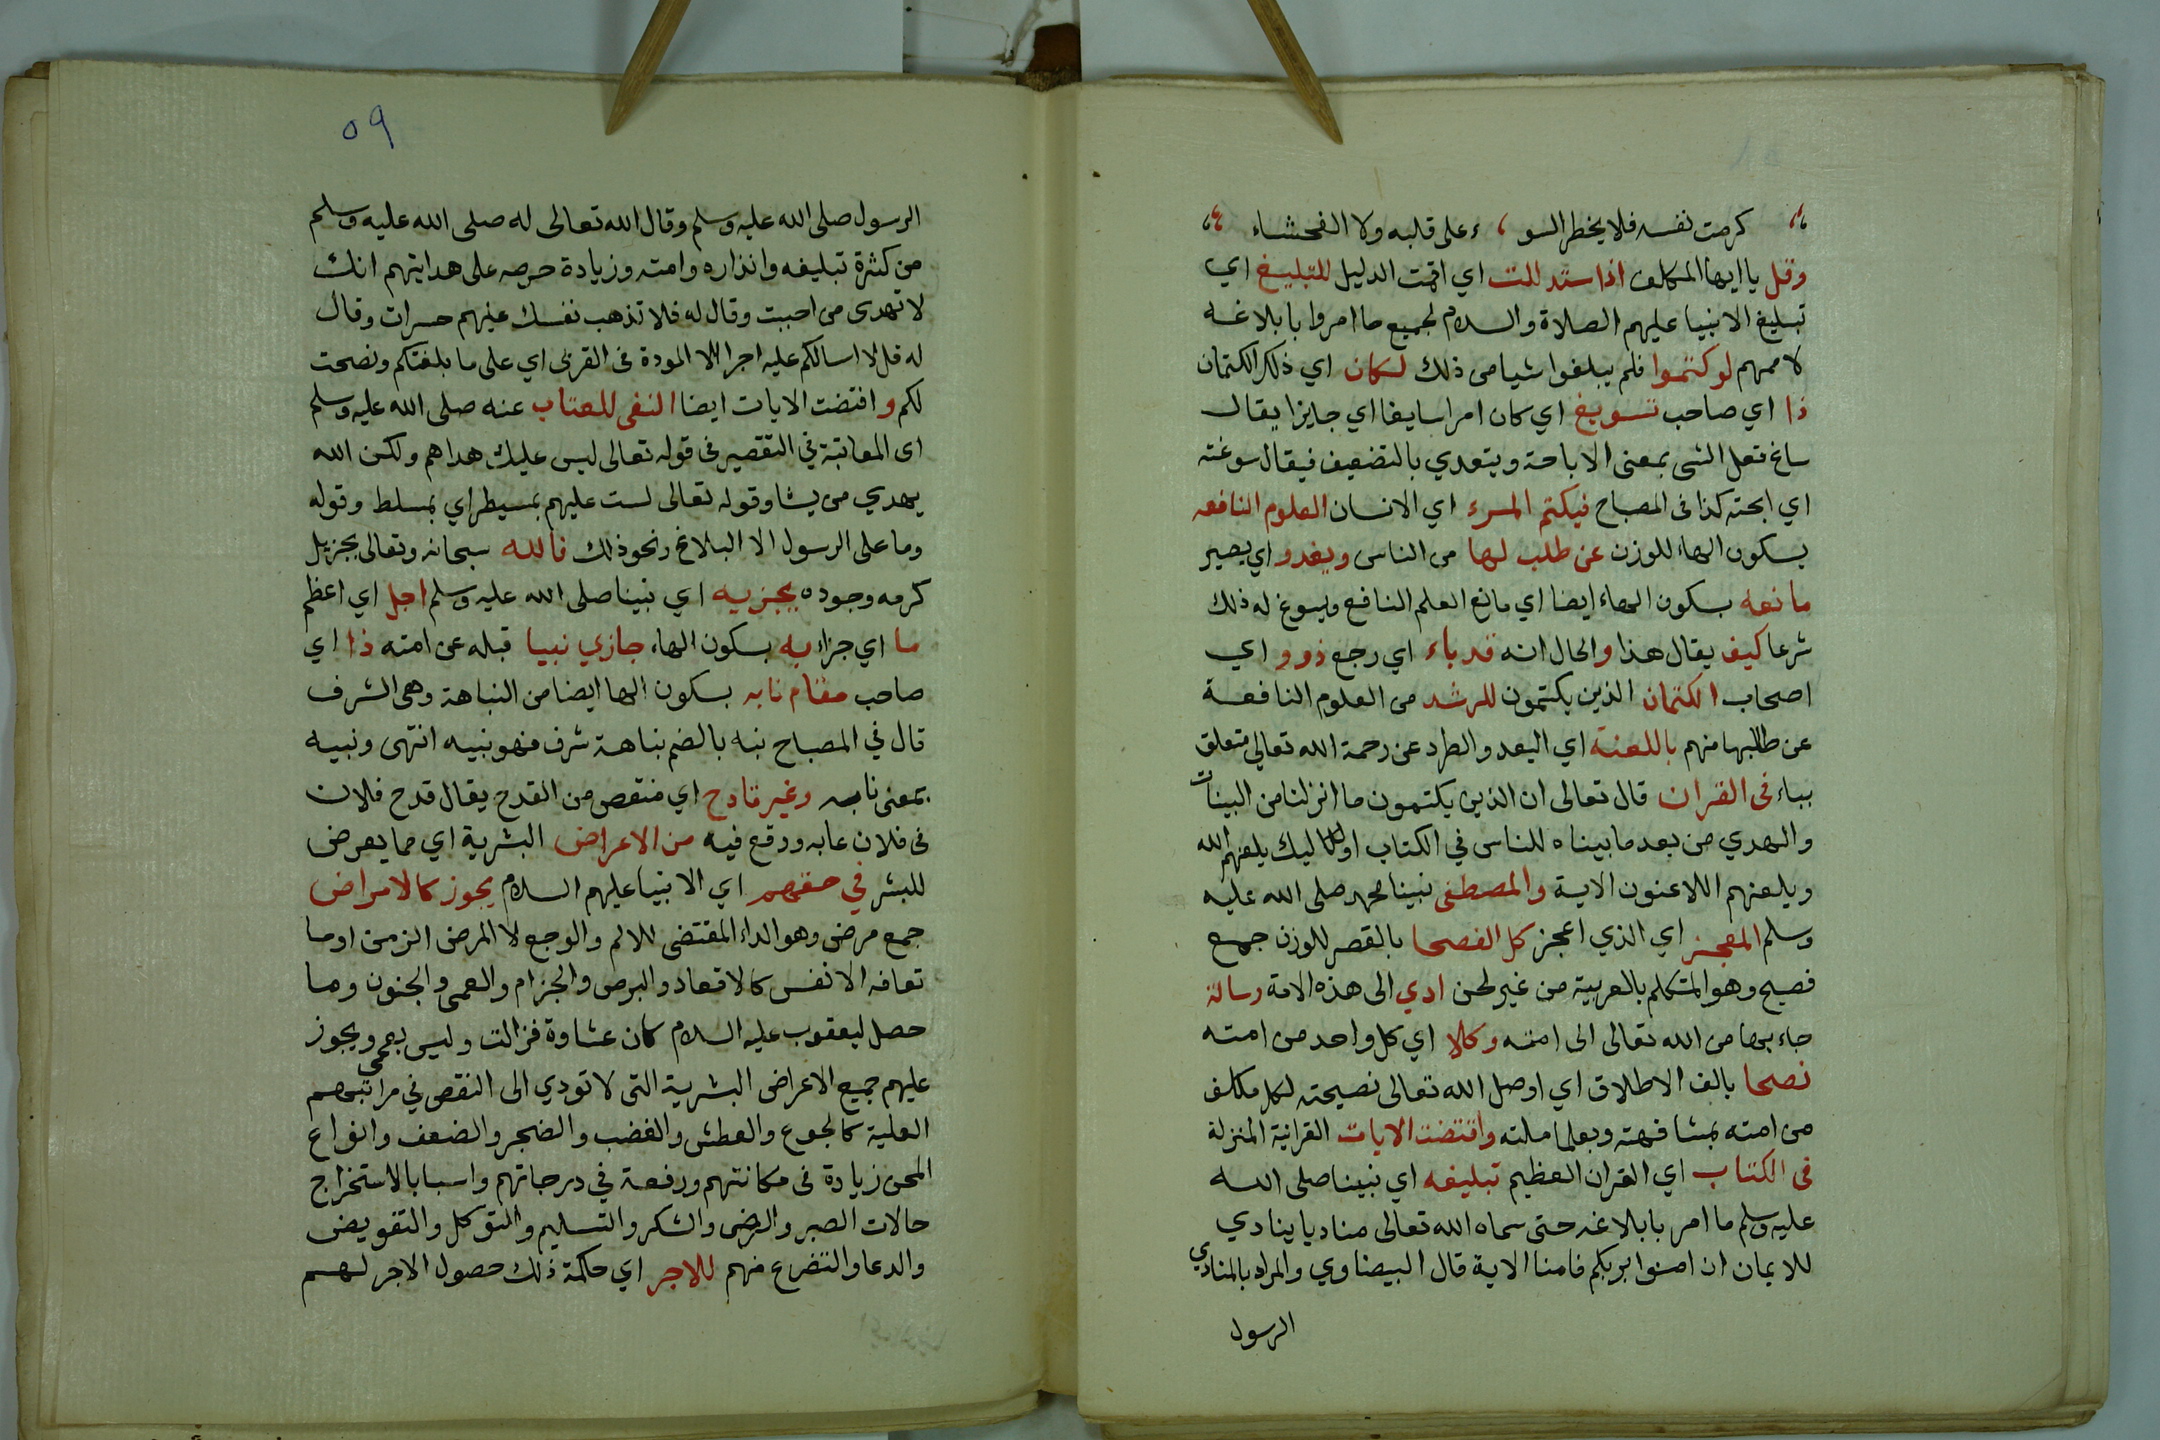 كرمت نفسه فلا يخطر السوء على قلبه ولا الفحشاء
وقل يا ايها المكلف اذا ستدللت اي اقمت الدليل للتبليغ اي
تبليغ الانبيا عليهم الصلاة والسلام لجميع ما امروا بابلاغه
لاممهم لو كتموا فلم يبلغوا شيا من ذلك لكان اي ذلك الكتمان
ذا اي صاحب تسويغ اي كان امرا سايغا اي جايزا يقال
ساغ فعل الشى بمعنى الاباحة ويتعدي بالتضعيف فيقال سوغته
اي ابحته كذا فى المصباح فيكتم المرء اي الانسان العلوم النافعه
بسكون الهاء للوزن عن طلب لها من الناس ويغدو اي يصير
مانعه بسكون الهاء ايضا اي مانع العلم النافع ويسوغ له ذلك
شرعا كيف يقال هذا والحال انه قد باء اي رجع ذوو اي
اصحاب الكتمان الذين يكتمون للرشد من العلوم النافعة
عن طالبها منهم باللعنة اي البعد والطرد عن رحمة الله تعالى متعلق
بباء فى القران قال تعالى ان الذين يكتمون ما انزلنا من البينات
والهدي من بعد ما بيناه للناس في الكتاب اولئك يلعنهم الله
ويلعنهم اللاعنون الاية والمصطفى نبينا محمد صلى الله عليه
وسلم المعجز اي الذي اعجز كل الفصحا بالقصر للوزن جمع
فصيح وهو المتكلم بالعربية من غير لحن ادي الى هذه الامة رسالة
جاء بها من الله تعالى الى امته وكلا اي كل واحد من امته
نصحا بالف الاطلاق اي اوصل الله تعالى نصيحته لكل مكلف
من امته بمشافهته وبعلما ملته واقتضت الايات القرانية المنزلة
فى الكتاب اي القران العظيم تبليغه اي نبينا صلى الله
عليه وسلم ما امر بابلاغه حتى سماه الله تعالى مناديا ينادي
للايمان ان امنوا بربكم فامنا الاية قال البيضاوي والمراد بالمنادي
الرسول
٥٩
الرسول صلى الله عليه وسلم وقال الله تعالى له صلى الله عليه وسلم
من كثرة تبليغه وانذاره وامته وزيادة حرصه على هدايتهم انك
لا تهدى من احببت وقال له فلا تذهب نفسك عليهم حسرات وقال
له قل لا اسالكم عليه اجرا الا المودة فى القربى اي على ما بلغتكم ونصحت
لكم و اقتضت الايات ايضا النفى للعتاب عنه صلى الله عليه وسلم
اى المعاتبة في التقصير فى قوله تعالى ليس عليك هداهم ولكن الله
يهدي من يشا وقوله تعالى لست عليهم بمسيطر اي بمسلط وقوله
وما على الرسول الا البلاغ ونحو ذلك فالله سبحانه وتعالى بجزيل
كرمه وجوده يجزيه اي نبينا صلى الله عليه وسلم اجل اي اعظم
ما اي جزاء به بسكون الهاء جازي نبيا قبله عن امته ذا اي
صاحب مقام نابه بسكون الها ايضا من النباهة وهى الشرف
قال في المصباح نبه بالضم نباهة شرف فهو نبيه انتهى ونبيه
بمعنى نابه وغير قادح اي منقص من القدح يقال قدح فلان
فى فلان عابه ووقع فيه من الاعراض البشرية اي مما يعرض
للبشر في حقهم اي الانبيا عليهم السلام يجوز كالامراض
جمع مرض وهو الداء المقتضى للالم والوجع لا المرض الزمن او ما
تعافه الانفس كالاقعاد والبرص والجزام والعمى والجنون وما
حصل ليعقوب عليه السلام كان عشاوة فزالت وليس بعمى ويجوز
عليهم جميع الاعراض البشرية التى لا تودي الى النقص في مراتبهم
العلية كالجوع والعطش والغضب والضجر والضعف وانواع
المحن زيادة فى مكانتهم ورفعة في درجاتهم واسبابا لاستخراج
حالات الصبر والرضى والشكر والتسليم والتوكل والتفويض
والدعا والتضرع منهم للاجر اي حكمة ذلك حصول الاجر لهم